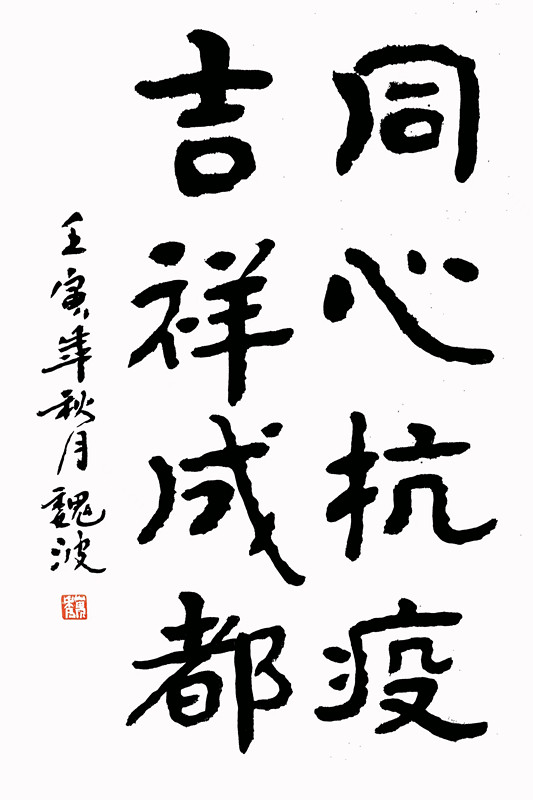 同心抗疫
吉祥成都
壬寅年秋月魏波